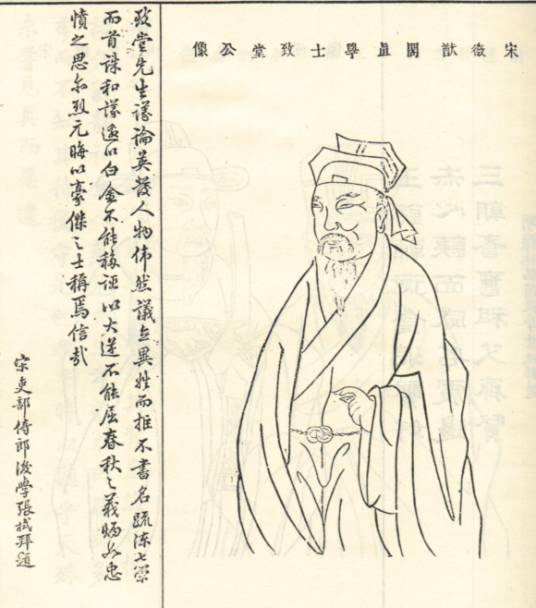 宋徽猷閣直學士致堂公像
致堂先生議論英發人物偉然議立異姓而推不書名疏陳七策
而首誅和議遺以白金不能移誣以大逆不能屈春秋之義炳如忠
憤之思尒烈元晦以豪傑之士稱焉信哉
宋吏部侍郎後學張栻拜題